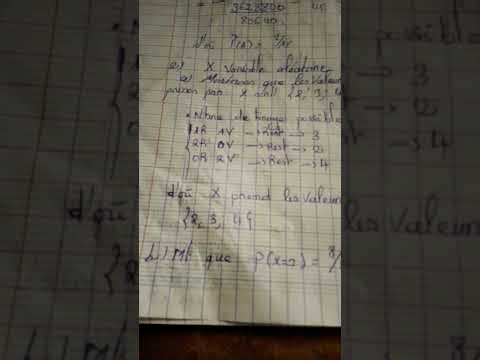 = 3628800
80640
D'où P(A) =
2) X Variable aléatoire
a) Montrons que les Valeurs
prises par X sont {2; 3; 4
Nbre de tirage possible
1R 1V → Rest → 3
2R 0V → Rest → 2
0R 2V → Rest → 4
d'où X prend les valeurs
{2, 3, 4}
b) Mq que P(X=2) = 8/